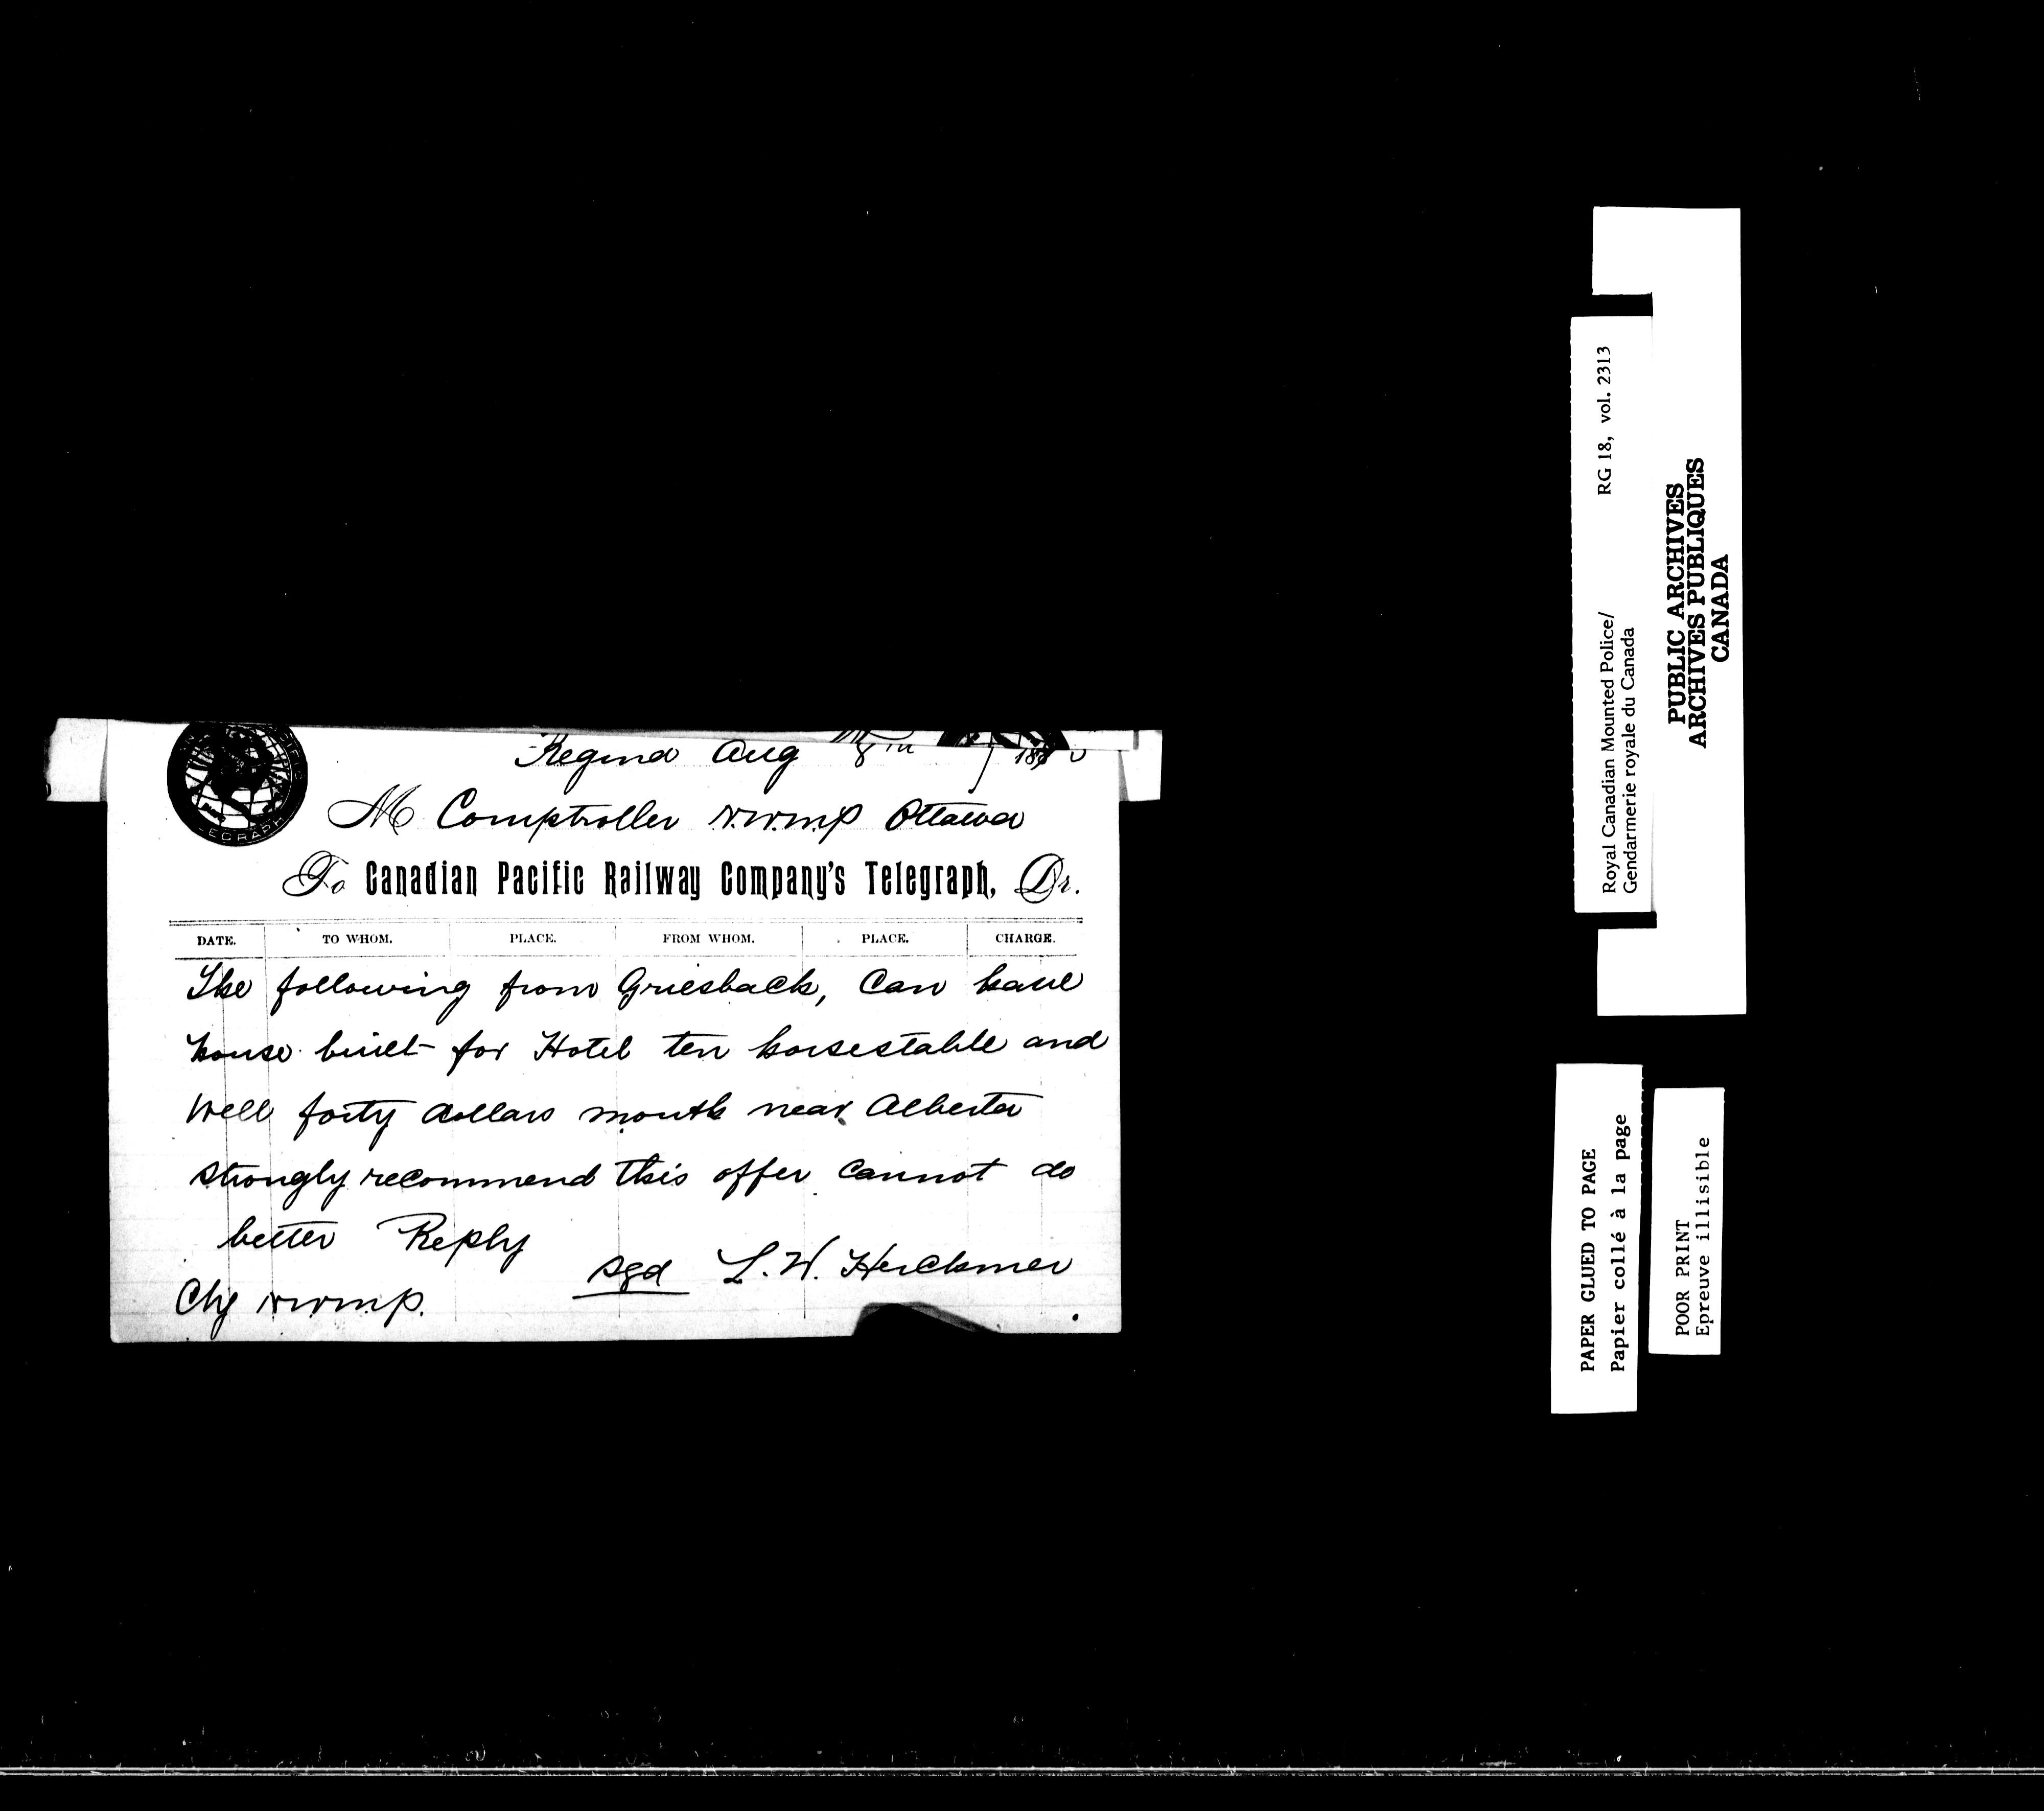 Regina Aug 8th
M Comptroller N.W.M.P Ottawa
To Canadian Pacific Railway Company's Telegraph, Dr.
DATE. TO WHOM. PLACE. FROM WHOM. PLACE. CHARGE.
The following from Griesback, Can have
house built for Hotel ten horsestable and
Well forty dollars month near Alberta
strongly recommend this offer cannot do
better Reply
sgd L. W. Herckmer
Chg NWMP.
Royal Canadian Mounted Police/ RG 18, vol. 2313
Gendarmerie royale du Canada
PUBLIC ARCHIVES
ARCHIVES PUBLIQUES
CANADA
PAPER GLUED TO PAGE
Papier collé à la page
POOR PRINT
Epreuve illisible